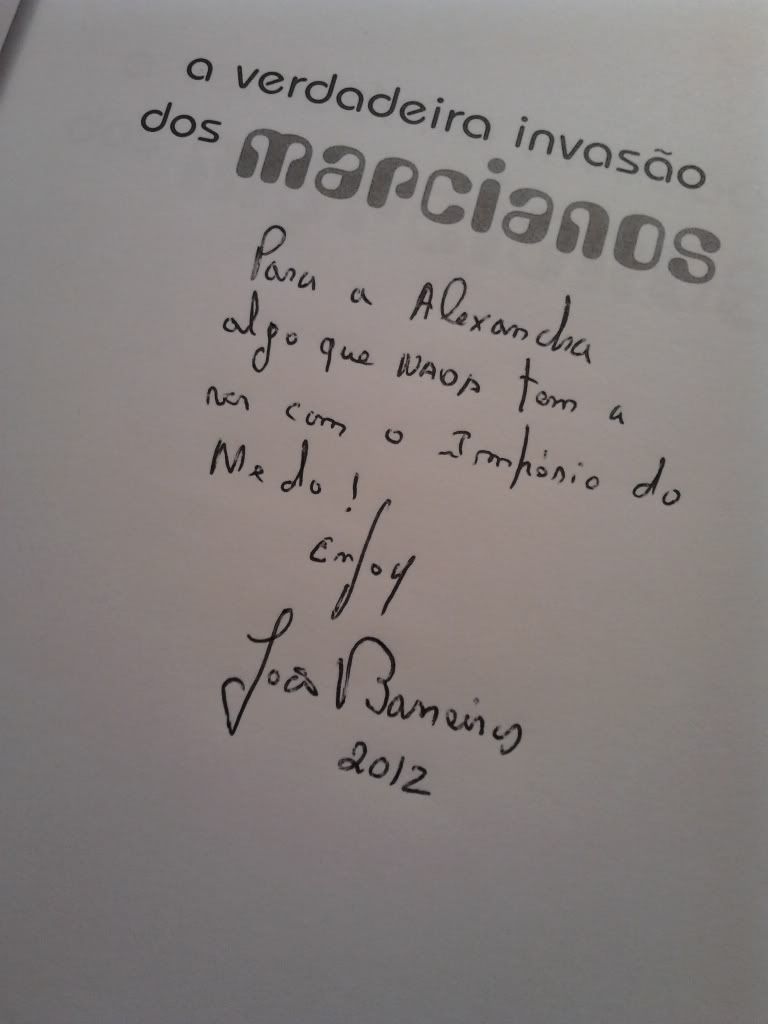 a verdadeira invasão
dos marcianos
Para a Alexandra
algo que NADA tem a
ver com o Império do
Medo!
Enjoy
João Barreiros
2012